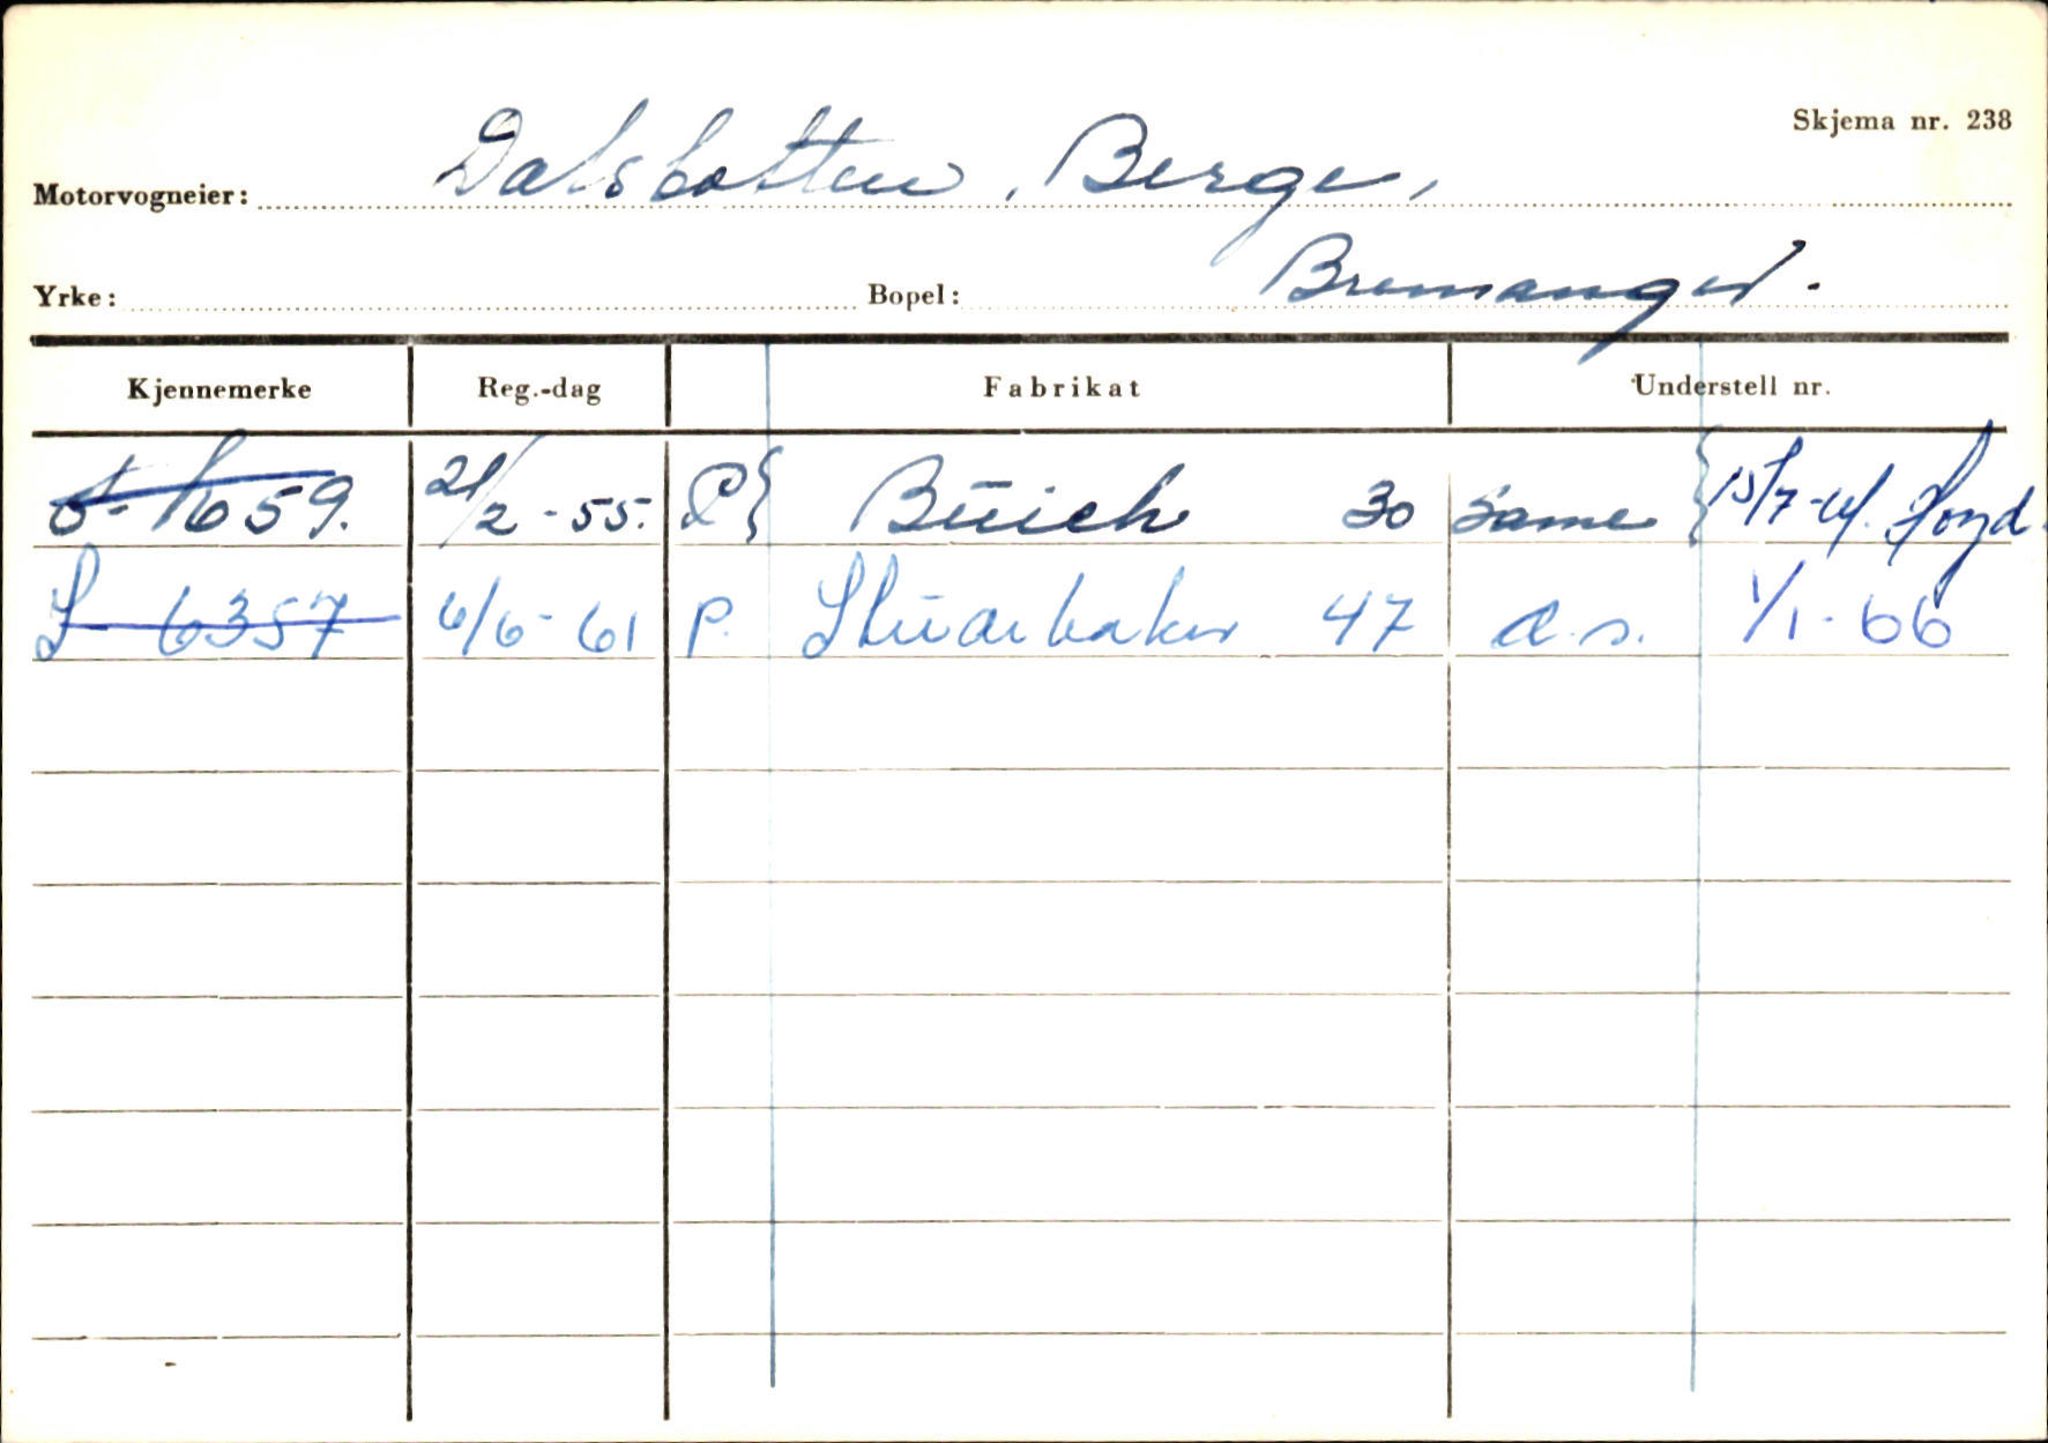 Skjema nr. 238
Motorvogneier: Dalsbotten, Berge,
Yrke: Bopel: Bremanger.
Kjennemerke Reg.-dag Fabrikat Understell nr.
S-1659. 21/2-55. P Buick 30 Same 15/7-61.
S-6357 6/6-61 P. Studebaker 47 d.s. 1/1-66